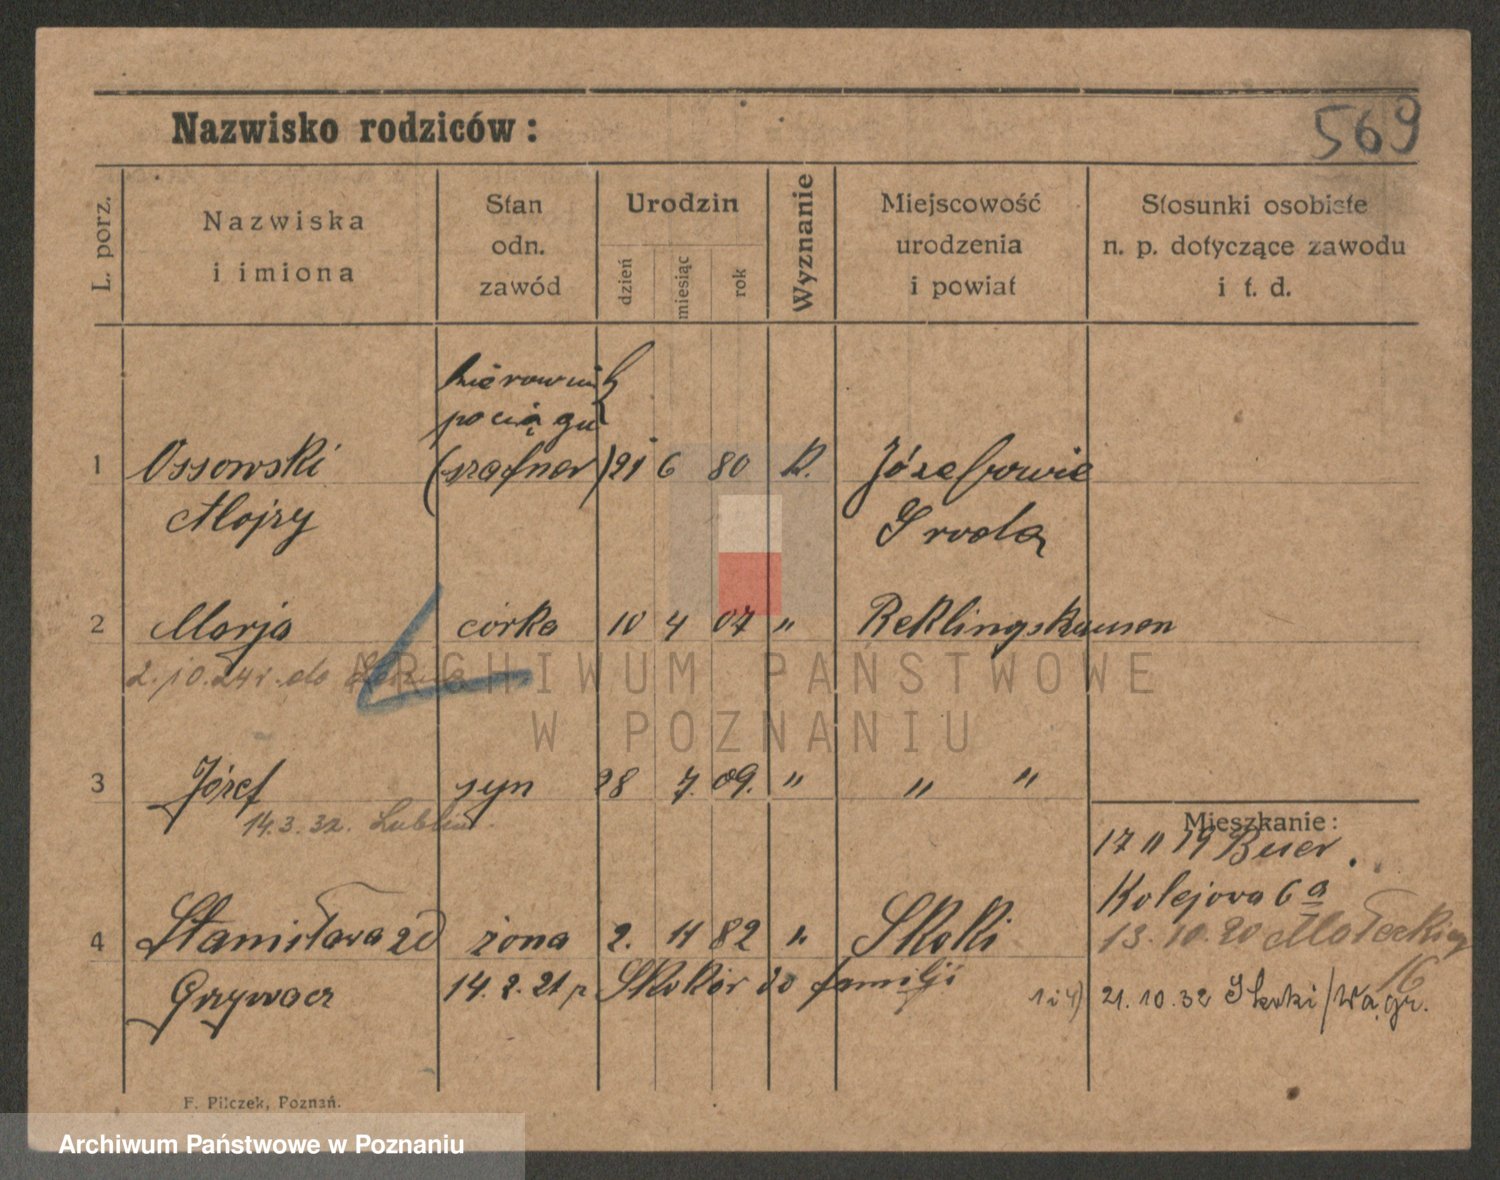 Nazwisko rodziców:
569
L. porz.
Nazwiska
i imiona
Stan
odn.
zawód
Urodzin
dzień
miesiąc
rok
Wyznanie
Miejscowość
urodzenia
i powiat
Stosunki osobiste
n. p. dotyczące zawodu
i t. d.
kierownik
pociągu
1 Ossowski (szafner) 21 6 80 R. Józefowie
Alojzy Sroda
2 Marja córka 10 4 07 " Reklingshausen
2. 10. 24 r. do
3 Józef syn 28 7. 09. " " "
14. 3. 32. Lublin.
Mieszkanie:
17 11 19 Buer.
Kolejowa 6 a
4 Stanisława zd żona 2. 11 82 " Skoki
13. 10. 20 Małeckiego
16
Grzywacz 14. 2. 21 p Skokór do familji
1 i 4) 21. 10. 32 Skoki/Wągr.
F. Pilczek, Poznań.
ARCHIWUM PAŃSTWOWE
W POZNANIU
Archiwum Państwowe w Poznaniu